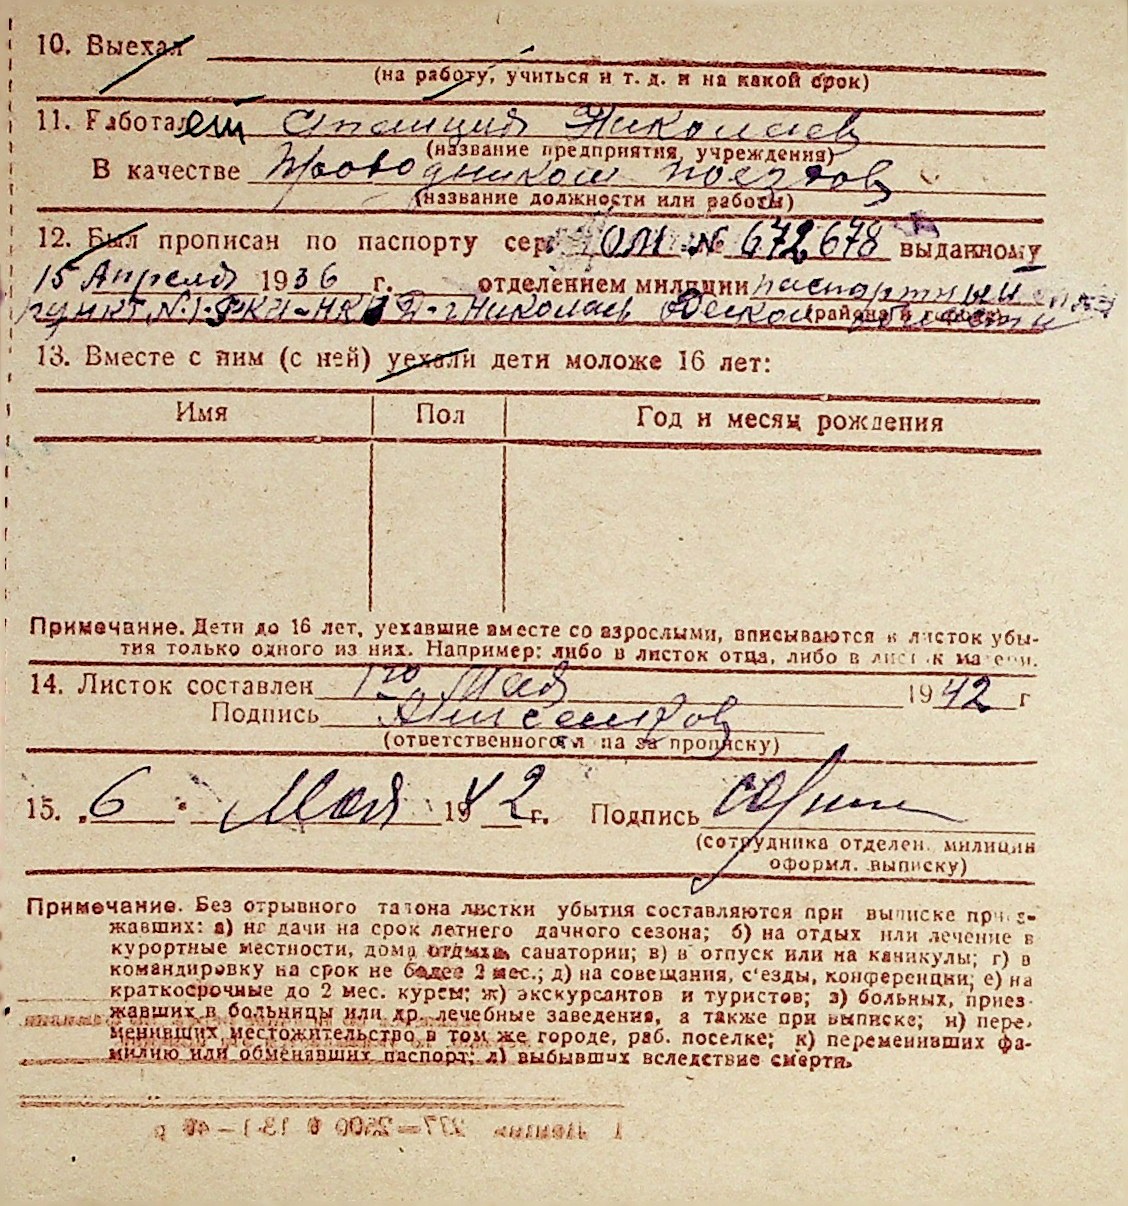 10. Выехал
(на работу, учиться и т. д. и на какой срок)
11. Работает станция Николаев
(название предприятия, учреждения)
В качестве Проводником поездов
(название должности или работы)
12. Был прописан по паспорту сер. ОМ № 672678 выданному
15 Апреля 1936 г. отделением милиции паспортный
пункт № 1 РКМ-НКВД г Николаев Одеской области
(района и города)
13. Вместе с ним (с ней) уехали дети моложе 16 лет:
Имя Пол Год и месяц рождения
Примечание. Дети до 16 лет, уехавшие вместе со взрослыми, вписываются в листок убы-
тия только одного из них. Например: либо в листок отца, либо в листок матери.
14. Листок составлен 1го Мая 1942 г
Подпись
(ответственного за прописку)
15. „6" Мая 1942 г. Подпись
(сотрудника отделен. милиции
оформл. выписку)
Примечание. Без отрывного талона листки убытия составляются при выписке приез-
жавших: а) на дачи на срок летнего дачного сезона; б) на отдых или лечение в
курортные местности, дома отдыха, санатории; в) в отпуск или на каникулы; г) в
командировку на срок не более 2 мес.; д) на совещания, с'езды, конференции; е) на
краткосрочные до 2 мес. курсы; ж) экскурсантов и туристов; з) больных, приез-
жавших в больницы или др. лечебные заведения, а также при выписке; и) пере-
менивших местожительство в том же городе, раб. поселке; к) переменивших фа-
милию или обменявших паспорт; л) выбывших вследствие смерти.